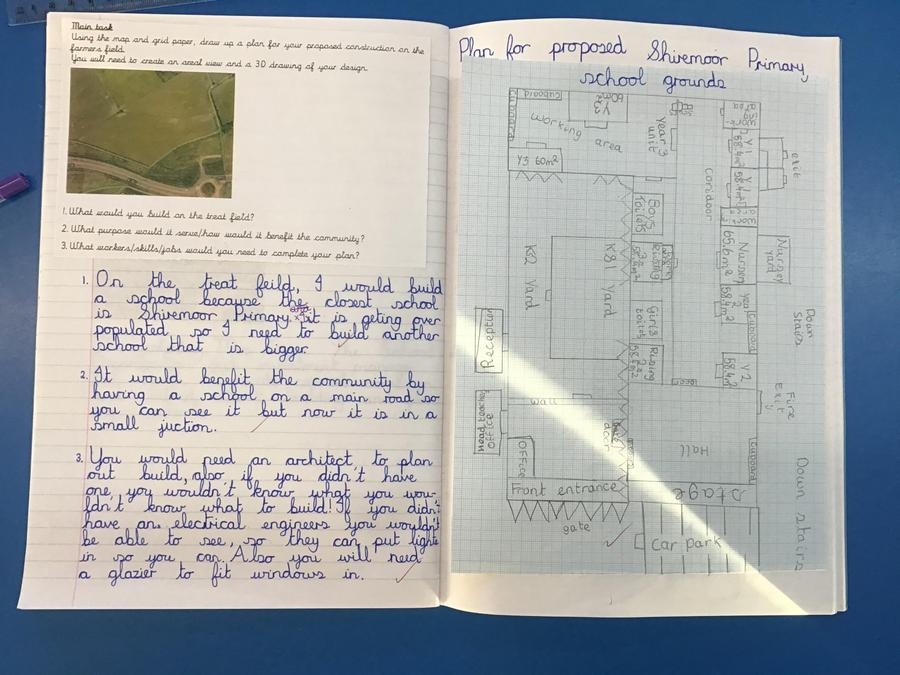 Main task
Using the map and grid paper, draw up a plan for your proposed construction on the
farmers field.
You will need to create an areal view and a 3D drawing of your design.
1. What would you build on the treat field?
2. What purpose would it serve/how would it benefit the community?
3. What workers/skills/jobs would you need to complete your plan?
1. On the treat feild, I would build
a school because the closest school
is Shiremoor Primary. it is geting over
populated, so I need to build another
school that is bigger.
2. It would benefit the community by
having a school on a main road so
you can see it but now it is in a
small juction.
3. You would need an architect to plan
out build, also if you didn't have
one, you wouldn't know what you wou-
ldn't know what to build! If you didn't
have an electrical engineers you wouldn't
be able to see, so they can put lights
in so you can. Also you will need
a glazier to fit windows in.
Plan for proposed Shiremoor Primary
school grounds
cuboard
cuboard
60m2
Y3
working
area
Y3 60m2
Year 3
unit
Y1
58.4m2
Y1
58.4m2
exit
corridoor
Boys
toilets
Nursery
65.6m2
Nursery
yard
KS2 Yard
KS1 Yard
Girls
toilets
Year
2
58.4m2
Cuboard
Y2
58.4m2
Down
Stairs
Reception
Fire
Exit
wall
Head teacher
OFFICE
OFFICE
door
Hall
Cuboard
Stage
Front entrance
gate
Car park
Down stairs